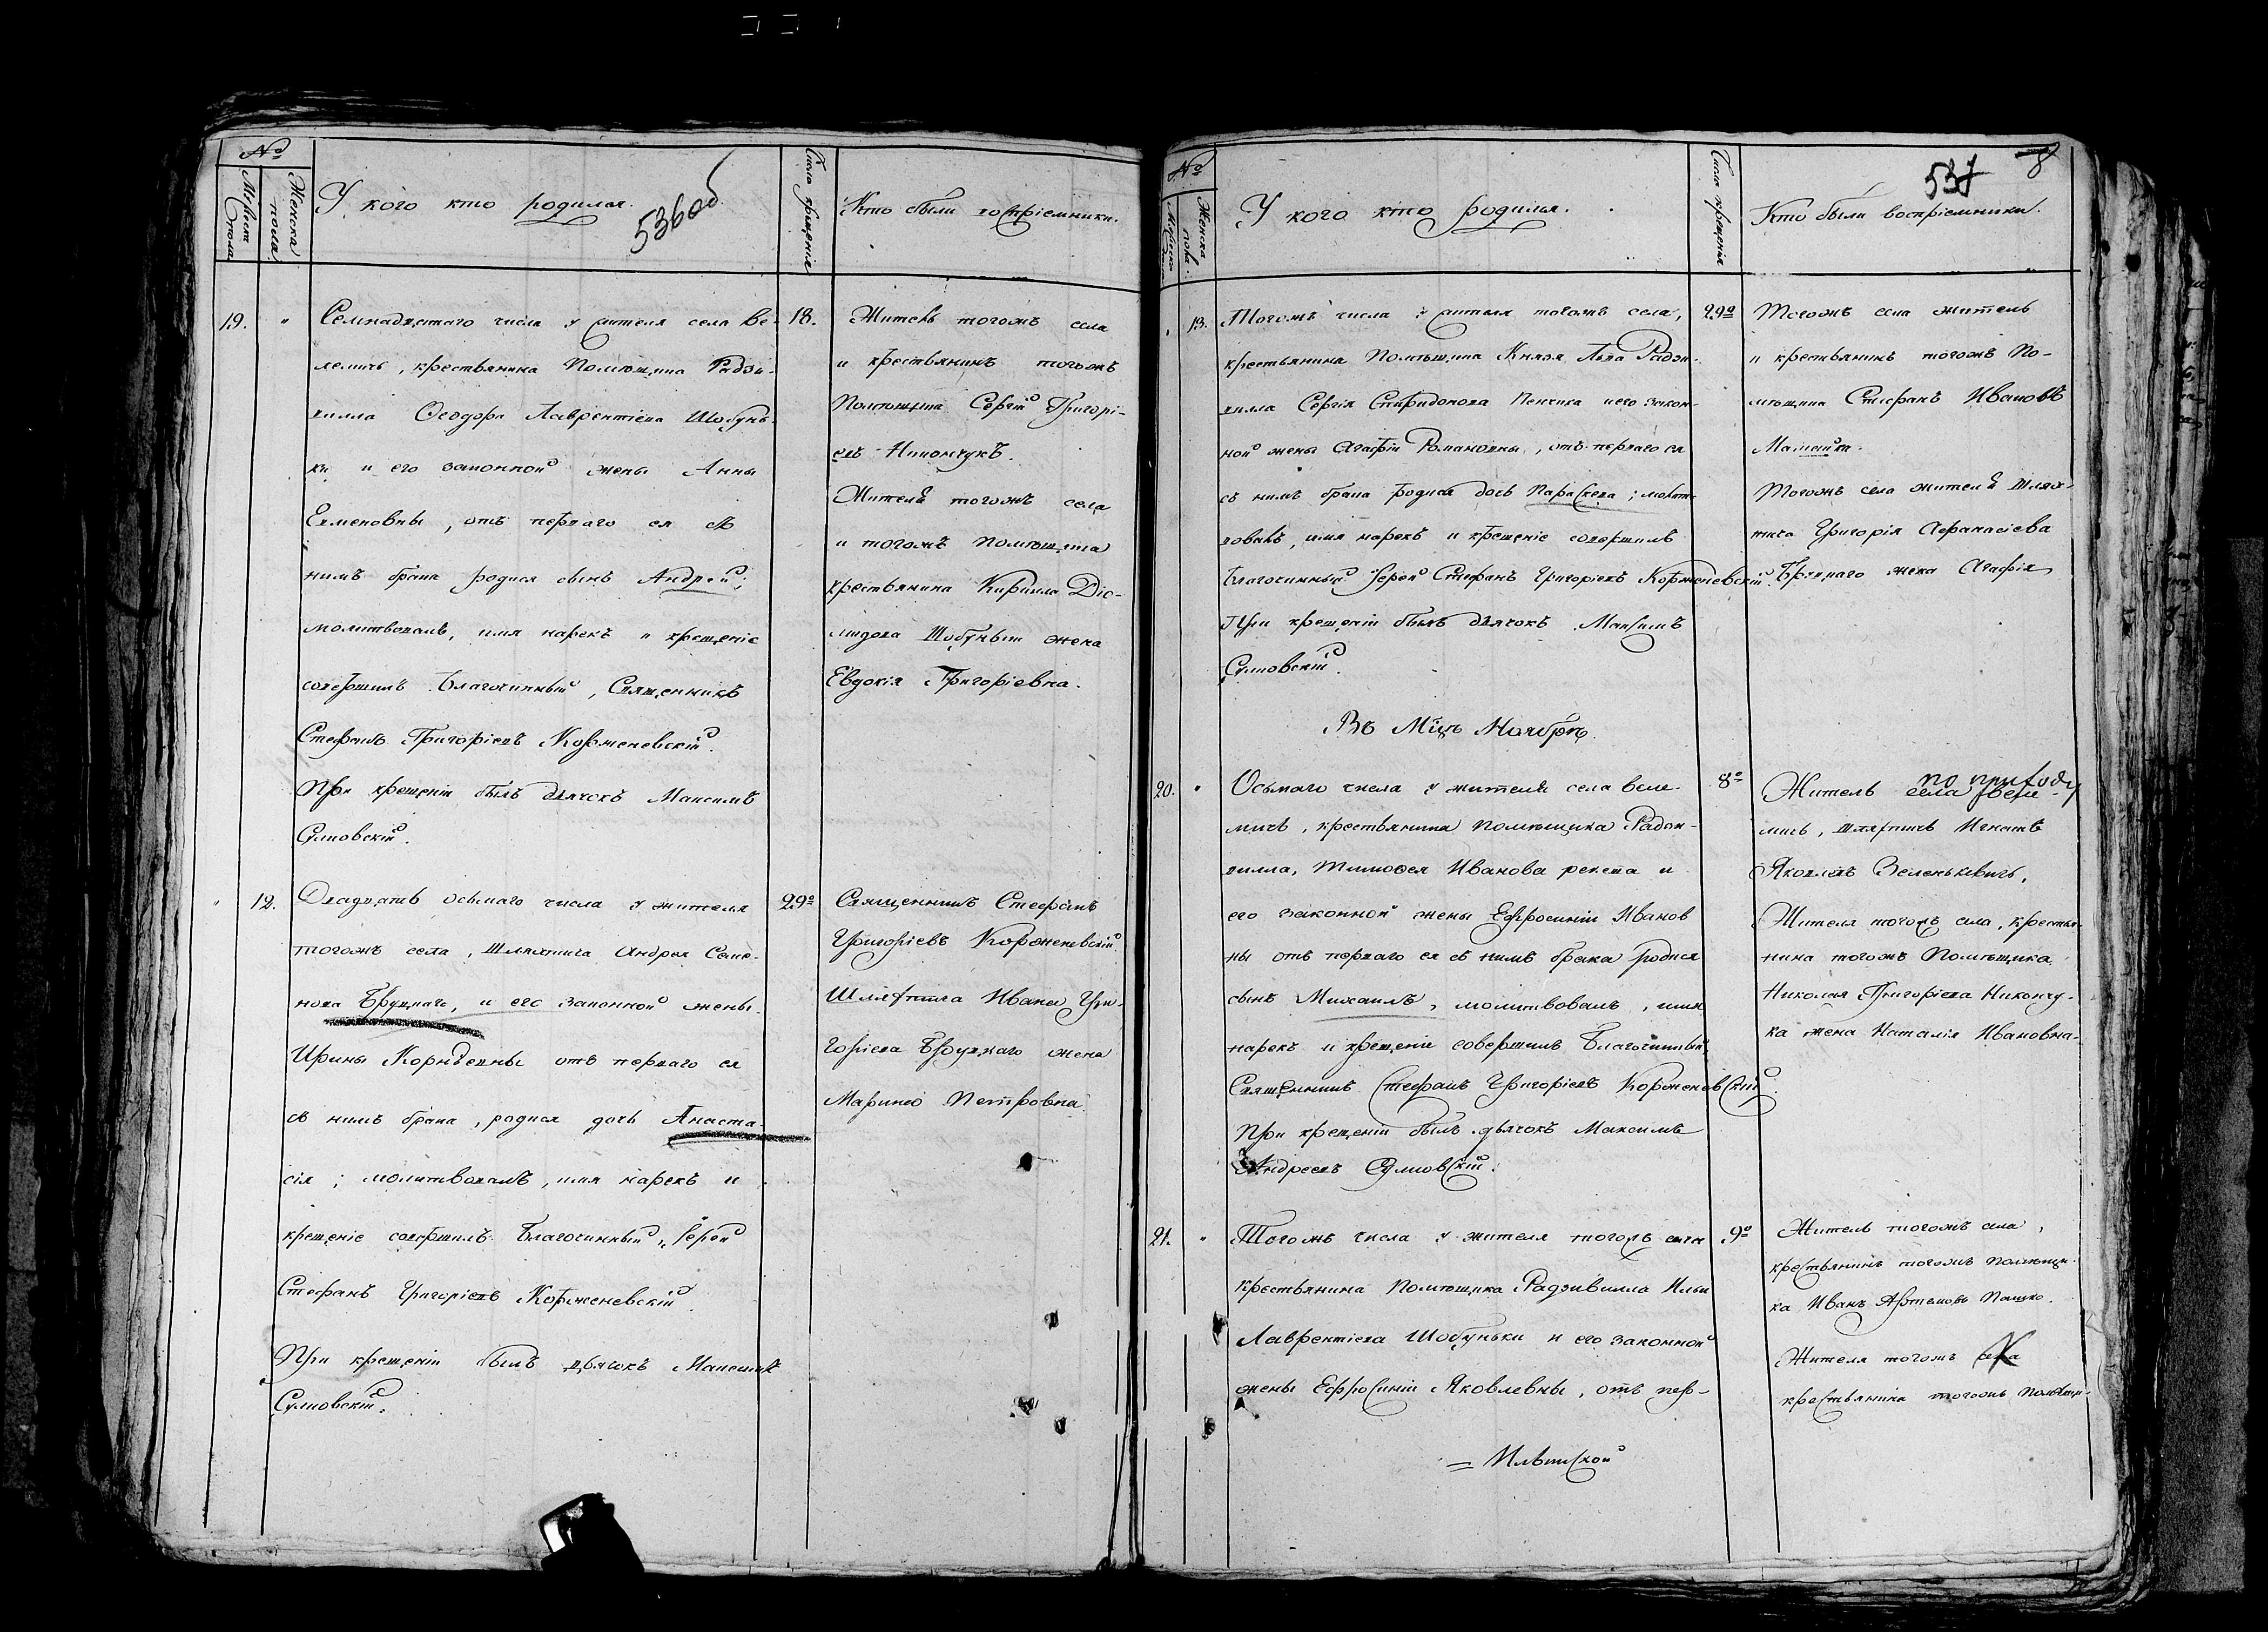 №
Мужеска пола
Женска пола
У кого кто родился.
536об
Число крещенія
Кто были воспріемники.
19.
Семнадцатаго числа у жителя села Ве-
лемичь, крестьянина Помѣщика Радзи-
вилла Ѳеодора Лаврентіева Шобунь-
ки и его законной жены Анны
Семеновны, отъ перваго ея съ
нимъ брака родися сынъ Андрей;
молитвовалъ, имя нарекъ и крещеніе
совершилъ Благочинный, Священникъ
Стефанъ Григоріевъ Корженевскій.
При крещеніи былъ дьячокъ Максимъ
Сулковскій.
18.
Житель тогожъ села
и крестьянинъ тогожъ
Помѣщика Сергій Григорі-
евъ Никончукъ.
Жителя тогожъ села
и тогожъ помѣщика
крестьянина Кирилла Діо-
мидова Шобуньки жена
Евдокія Григоріевна.
12.
Двадцать осьмаго числа у жителя
тогожъ села, Шляхтича Андрея Семе-
нова Бруцкаго, и его законной жены
Ирины Корнѣевны отъ перваго ея
съ нимъ брака, родися дочь Анаста-
сія; молитвовалъ, имя нарекъ и
крещеніе совершилъ Благочинный, Іерей
Стефанъ Григоріевъ Корженевскій.
При крещеніи былъ дьячокъ Максимъ
Сулковскій.
29º
Священникъ Стефанъ
Григоріевъ Корженевскій.
Шляхтича Ивана Гри-
горіева Бруцкаго жена
Марина Петровна.
№
Мужеска пола
Женска пола
У кого кто родился.
Число крещенія
537
8
Кто были воспріемники.
13.
Тогожъ числа у жителя тогожъ села,
крестьянина Помѣщика Князя Льва Радзи-
вилла Сергія Спиридонова Пенчика и его закон-
ной жены Агафіи Романовны, отъ перваго ея
съ нимъ брака родися дочь Параскева; молит-
вовалъ, имя нарекъ и крещеніе совершилъ
Благочинный Іерей Стефанъ Григоріевъ Корженевскій.
При крещеніи былъ дьячокъ Максимъ
Сулковскій.
29º
Тогожъ села житель
и крестьянинъ тогожъ По-
мѣщика Стефанъ Ивановъ
Тогожъ села жителя Шлях-
тича Григорія Афанасіева
Бруцкаго жена Агафія
Въ Мцѣ Ноябрѣ.
20.
Осьмаго числа у жителя села Веле-
мичь, крестьянина помѣщика Радзи-
вилла, Тимоѳея Иванова и
его законной жены Ефросиніи Иванов
ны отъ перваго ея съ нимъ брака родися
сынъ Михаилъ, молитвовалъ, имя
нарекъ и крещеніе совершилъ Благочинный,
Священникъ Стефанъ Григоріевъ Корженевскій.
При крещеніи былъ дьячокъ Максимъ
Андреевъ Сулковскій.
8º
по приходу
Житель села Веле-
мичь, шляхтичъ Игнатъ
Яковлевъ Зеленькевичъ,
Жителя тогожъ села, крестья-
нина тогожъ Помѣщика
Николая Григоріева Никончу-
ка жена Наталія Ивановна.
21.
Тогожъ числа у жителя тогожъ села
крестьянина Помѣщика Радзивилла Ильи
Лаврентіева Шобуньки и его законной
жены Ефросиніи Яковлевны, отъ пер-
9º
Житель тогожъ села,
крестьянинъ тогожъ помѣщи-
ка Иванъ Артемовъ Пашко.
Жителя тогожъ села
крестьянина тогожъ помѣщи-
= Ильинской